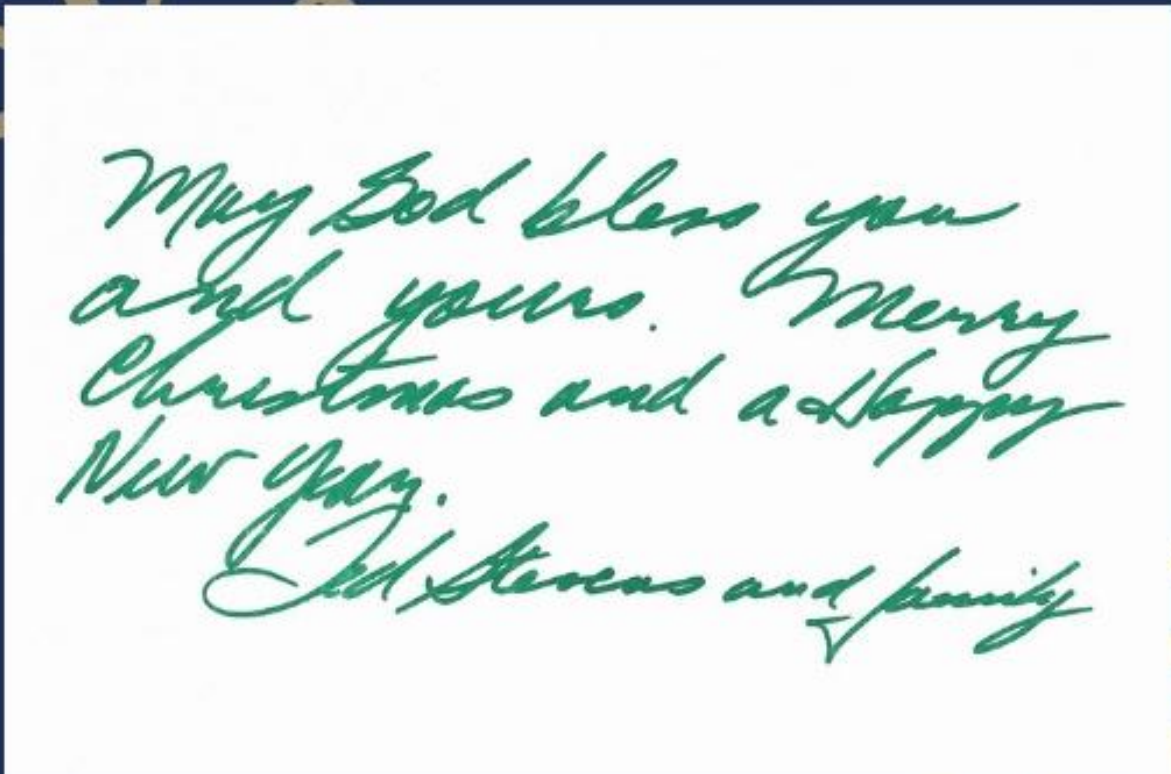 May God bless you
and yours. Merry
Christmas and a Happy
New Year.
Ted Stevens and family